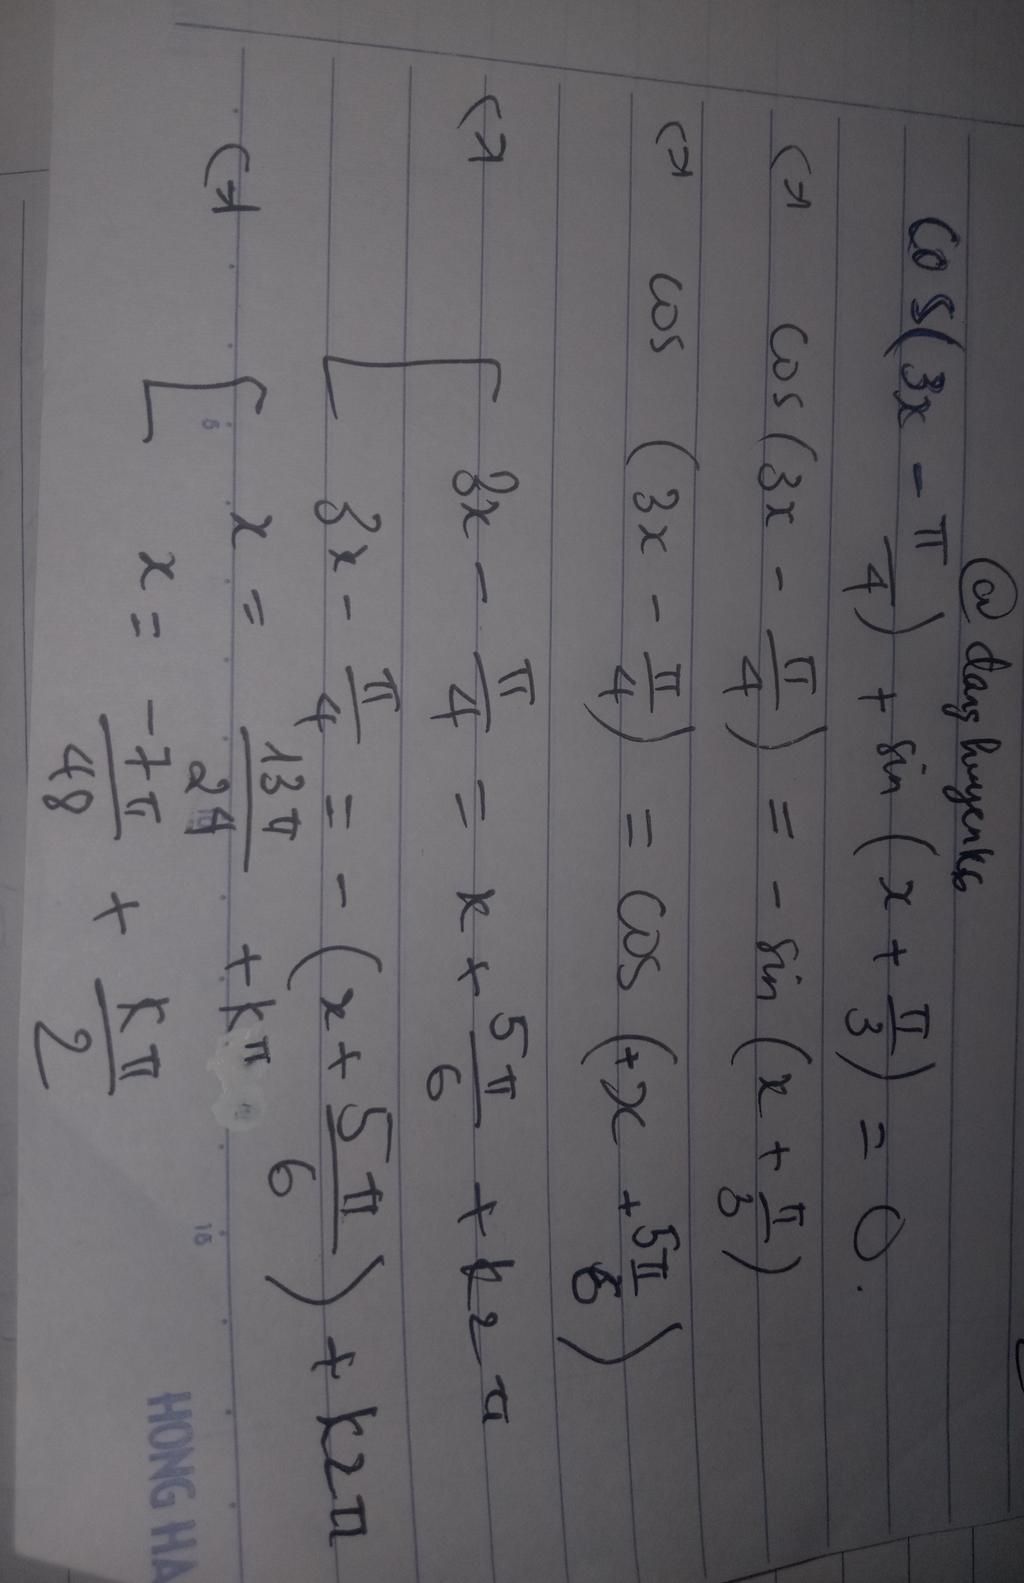 @ danghuyenks
cos(3x - π/4) + sin(x + π/3) = 0.
<=> cos(3x - π/4) = - sin(x + π/3)
<=> cos (3x - π/4) = cos(+x + 5π/6)
<=> [ 3x - π/4 = x + 5π/6 + k2π
3x - π/4 = - (x + 5π/6) + k2π
<=> [ x = 13π/24 + kπ
x = -7π/48 + kπ/2
HONG HA